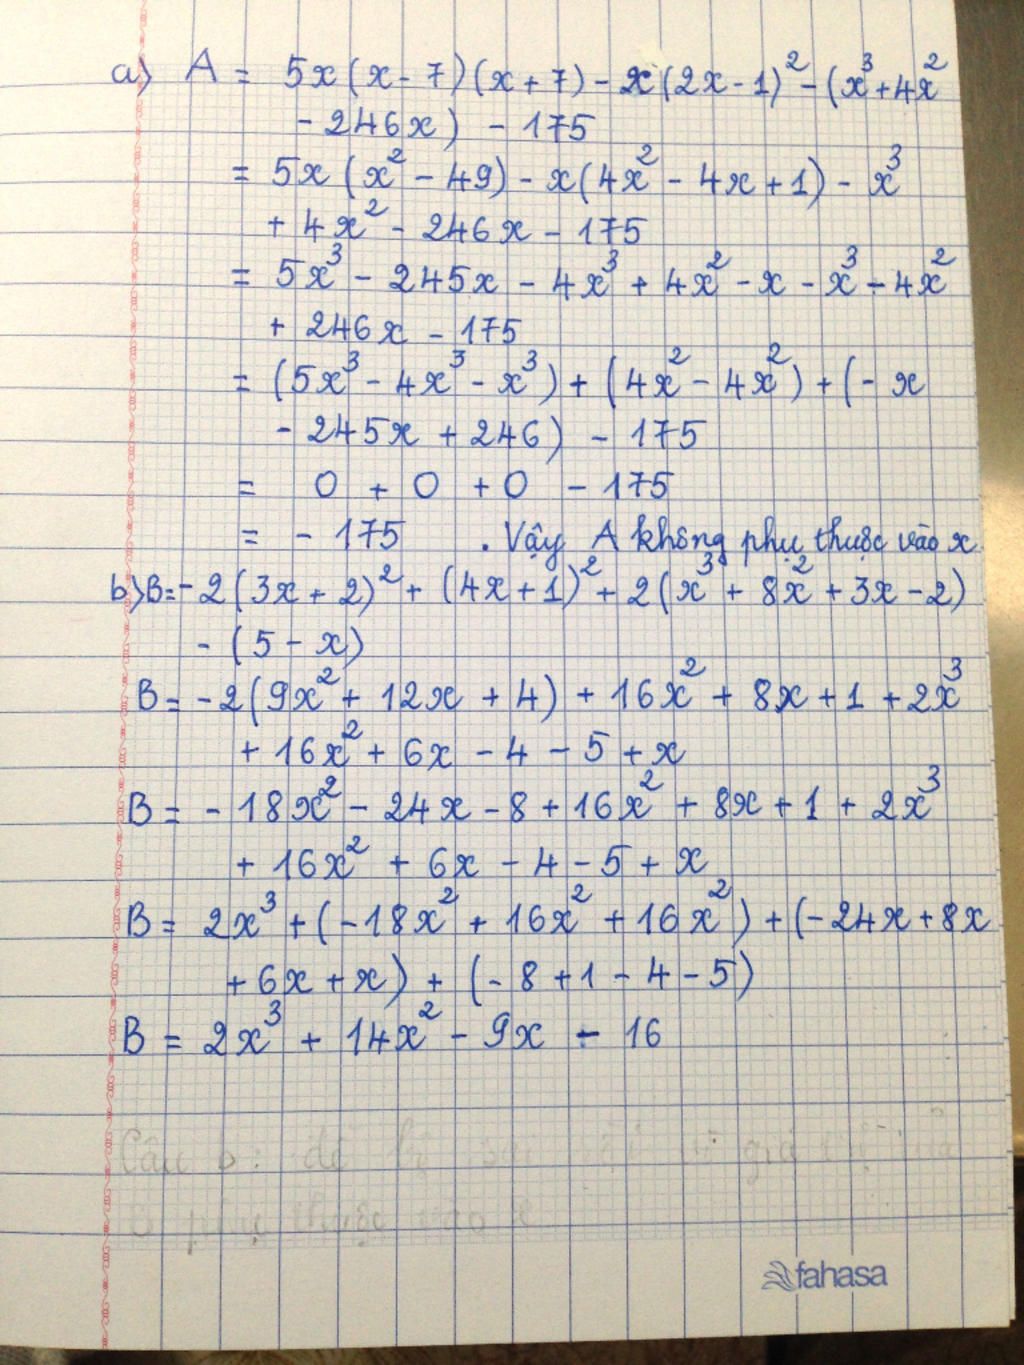 a) A = 5x(x-7)(x+7) - x(2x-1)² - (x³+4x²
- 246x) - 175
= 5x(x² - 49) - x(4x² - 4x + 1) - x³
+ 4x² - 246x - 175
= 5x³ - 245x - 4x³ + 4x² - x - x³ - 4x²
+ 246x - 175
= (5x³ - 4x³ - x³) + (4x² - 4x²) + (- x
- 245x + 246) - 175
= 0 + 0 + 0 - 175
= - 175 . Vậy A không phụ thuộc vào x
b) B = -2(3x + 2)² + (4x + 1)² + 2(x³ + 8x² + 3x - 2)
- (5 - x)
B = -2(9x² + 12x + 4) + 16x² + 8x + 1 + 2x³
+ 16x² + 6x - 4 - 5 + x
B = - 18x² - 24x - 8 + 16x² + 8x + 1 + 2x³
+ 16x² + 6x - 4 - 5 + x
B = 2x³ + (-18x² + 16x² + 16x²) + (-24x + 8x
+ 6x + x) + (- 8 + 1 - 4 - 5)
B = 2x³ + 14x² - 9x - 16
Câu b: đề bị sai vì giá trị
B phụ thuộc vào x
fahasa